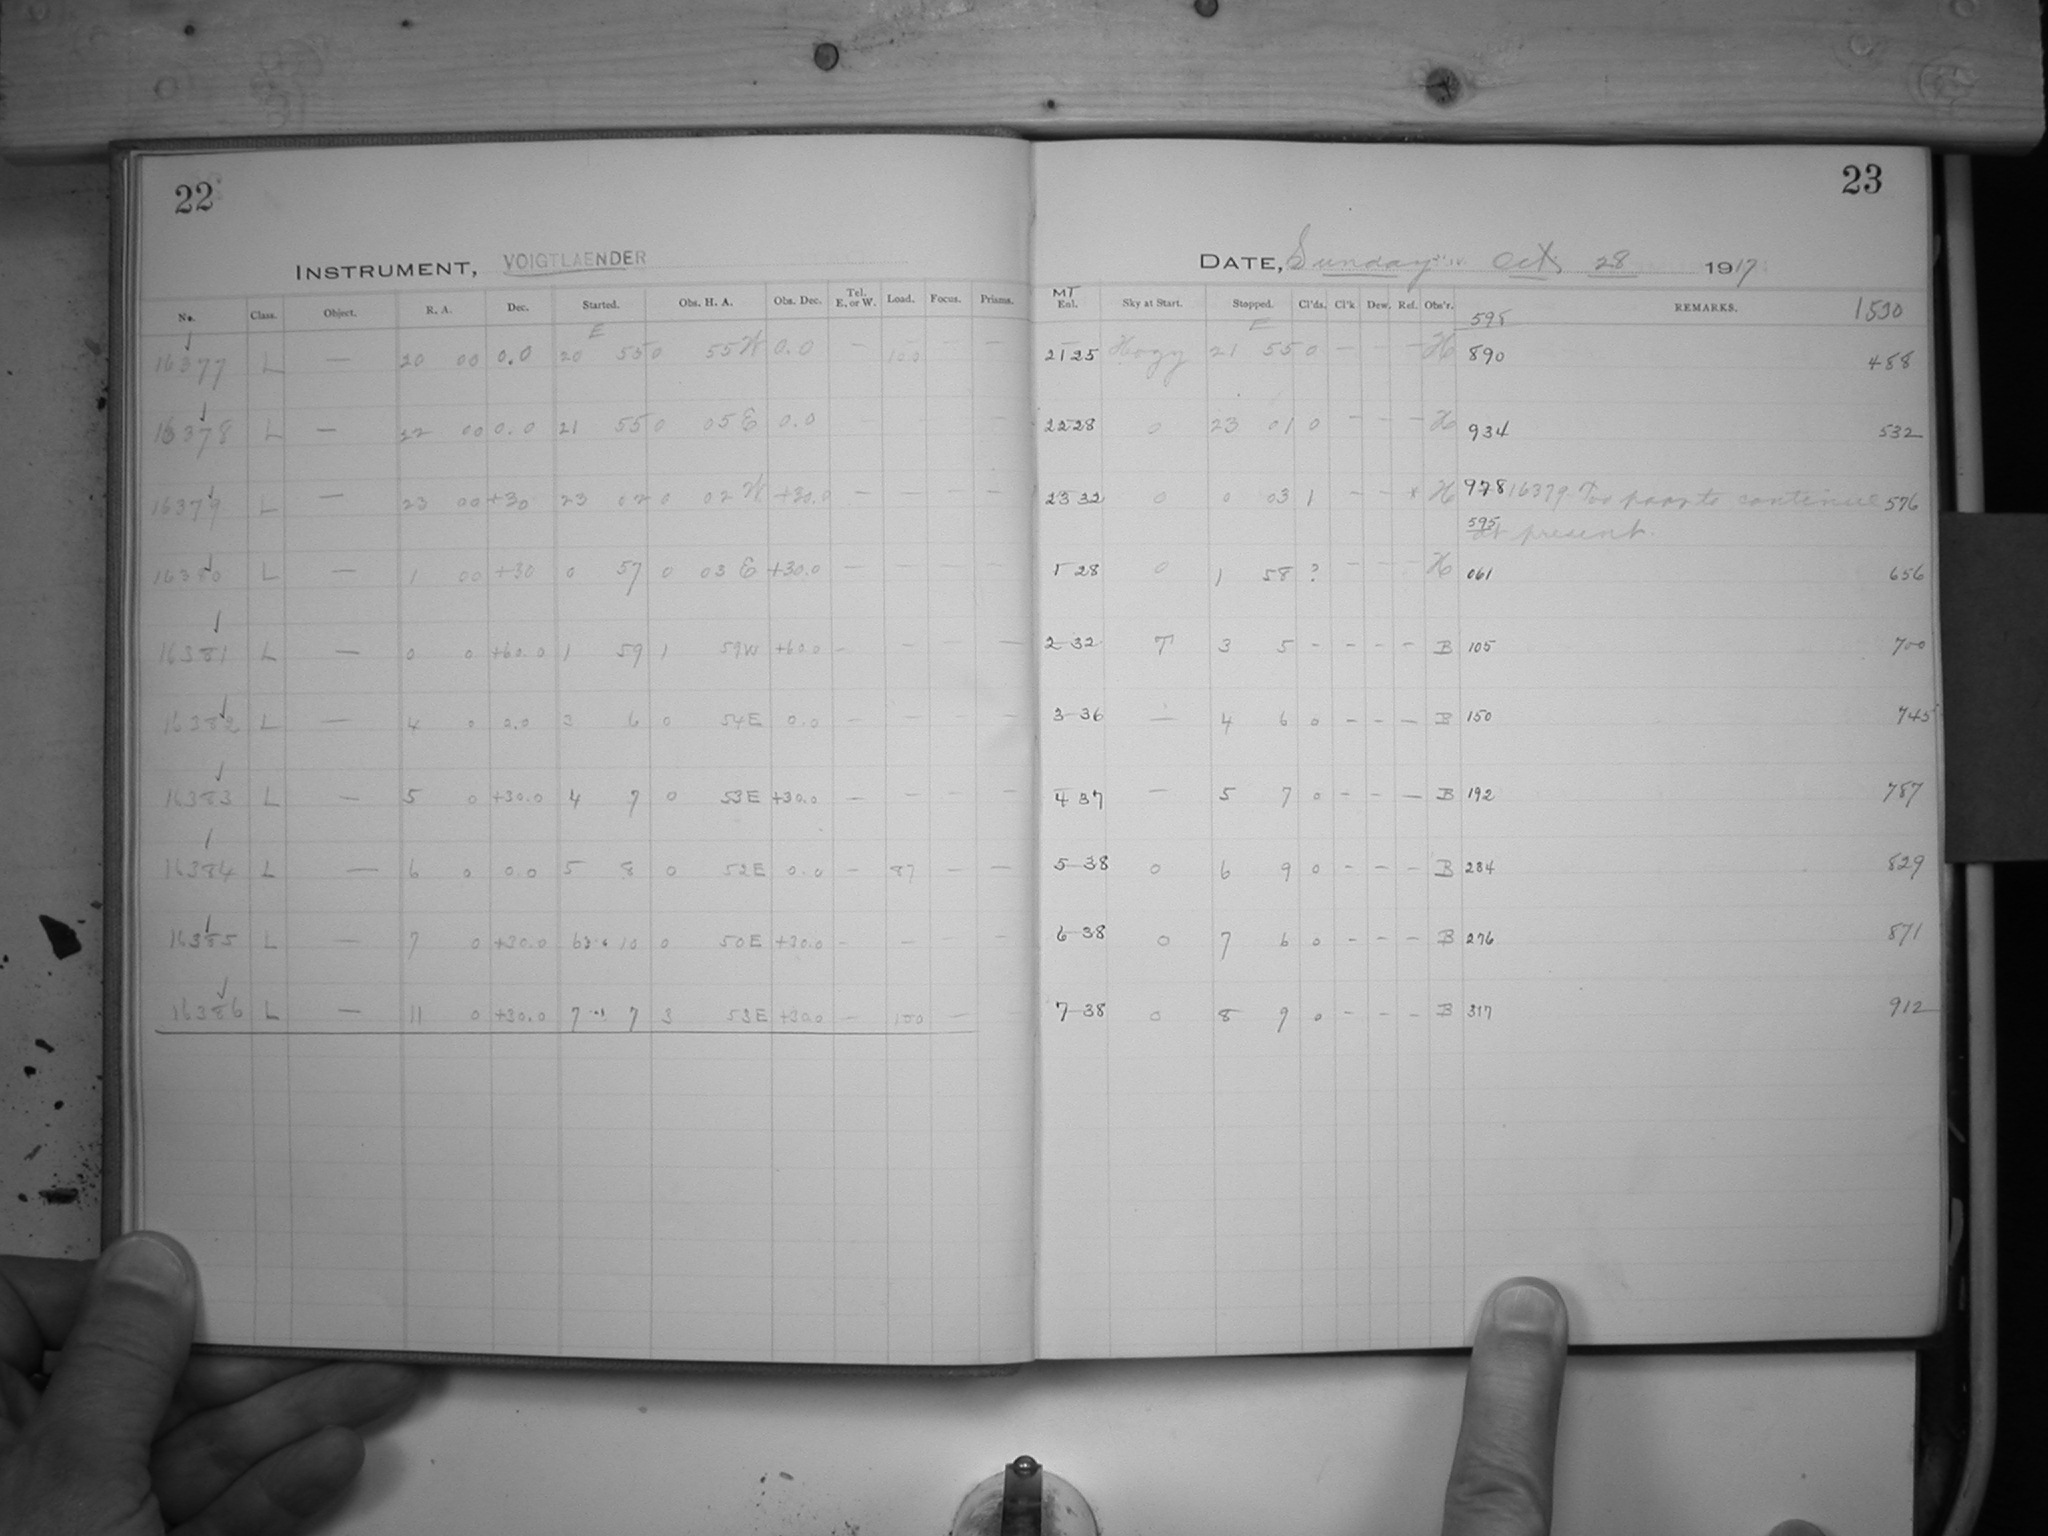 22
23
INSTRUMENT, VOIGTLAENDER
DATE, Sunday Oct 28 1917
No. Class. Object. R. A. Dec. Started. Obs. H. A. Obs. Dec. Tel. E. or W. Load. Focus. Prisms. MT Enl. Sky at Start. Stopped. Cl'ds. Cl'k Dew. Ref. Obs'r. REMARKS. 1530
E E 595
16377 L — 20 00 0.0 20 55 0 55 W 0.0 — 100 — — 21 25 Hazy 21 55 0 — — — H 890 488
16378 L — 22 00 0.0 21 55 0 05 E 0.0 22 28 0 23 01 0 — — — H 934 532
16379 L — 23 00 +30 23 02 0 02 W +30.0 — — — — 23 32 0 0 03 1 — — * H 978 16379 Too poor to continue 576
595 at present.
16380 L — 1 00 +30 0 57 0 03 E +30.0 — — — — 1 28 0 1 58 ? — — — H 061 656
16381 L — 0 0 +60.0 1 59 1 59W +60.0 — — — — 2 32 T 3 5 — — — — B 105 700
16382 L — 4 0 0.0 3 6 0 54E 0.0 — — — — 3 36 — 4 6 0 — — — B 150 745
16383 L — 5 0 +30.0 4 7 0 53E +30.0 — — — — 4 37 — 5 7 0 — — — B 192 787
16384 L — 6 0 0.0 5 8 0 52E 0.0 — 87 — — 5 38 0 6 9 0 — — — B 234 829
16385 L — 7 0 +30.0 6 10 0 50E +30.0 — — — — 6 38 0 7 6 0 — — — B 276 871
16386 L — 11 0 +30.0 7 7 3 53E +30.0 — 100 — — 7 38 0 8 9 0 — — — B 317 912